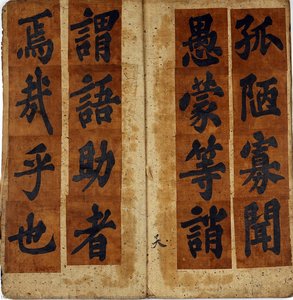 孤陋寡聞
愚蒙等誚
謂語助者
焉哉乎也
天